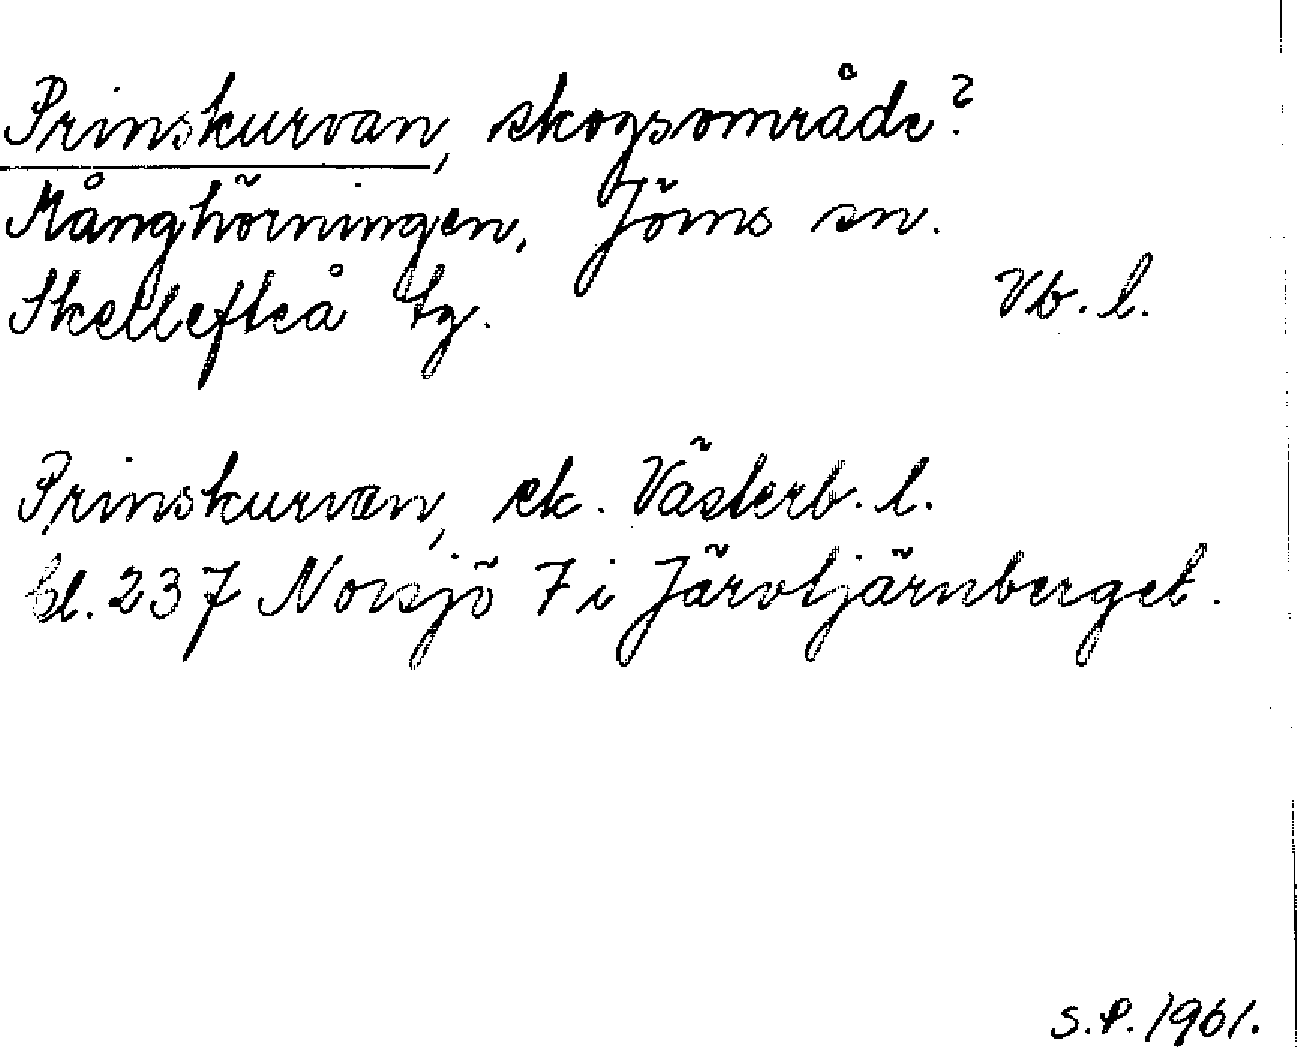 Prinskurvan, skogsområde?
Månghörningen, Jörns sn.
Skellefteå tg. Vb. l.
Prinskurvan, ek. Västerb. l.
bl. 237 Norsjö 7 i Järvtjärnberget.
S.P. 1961.